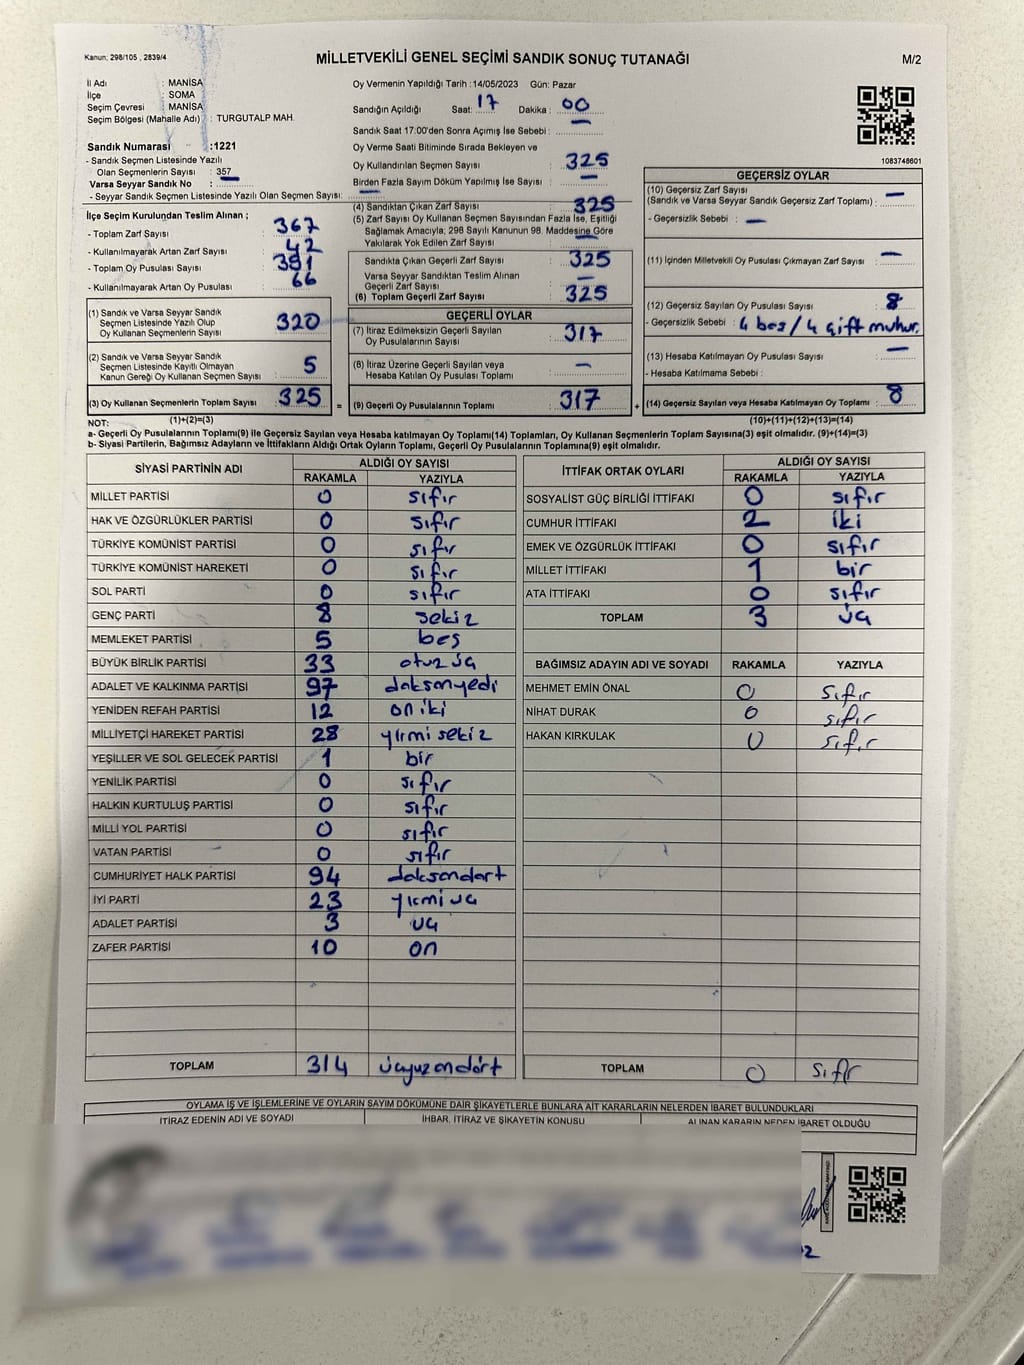 Kanun: 298/105 , 2839/4
MİLLETVEKİLİ GENEL SEÇİMİ SANDIK SONUÇ TUTANAĞI
M/2
İl Adı : MANİSA
İlçe : SOMA
Seçim Çevresi : MANİSA
Seçim Bölgesi (Mahalle Adı) : TURGUTALP MAH.
Sandık Numarası :1221
- Sandık Seçmen Listesinde Yazılı
Olan Seçmenlerin Sayısı : 357
Varsa Seyyar Sandık No :
- Seyyar Sandık Seçmen Listesinde Yazılı Olan Seçmen Sayısı: —
Oy Vermenin Yapıldığı Tarih : 14/05/2023 Gün: Pazar
Sandığın Açıldığı Saat: 17 Dakika : 00
Sandık Saat 17:00'den Sonra Açımış İse Sebebi : —
Oy Verme Saati Bitiminde Sırada Bekleyen ve
Oy Kullandırılan Seçmen Sayısı : 325
Birden Fazla Sayım Döküm Yapılmış İse Sayısı : —
1083748601
İlçe Seçim Kurulundan Teslim Alınan ;
- Toplam Zarf Sayısı : 367
- Kullanılmayarak Artan Zarf Sayısı : 42
- Toplam Oy Pusulası Sayısı : 391
- Kullanılmayarak Artan Oy Pusulası : 66
(1) Sandık ve Varsa Seyyar Sandık
Seçmen Listesinde Yazılı Olup
Oy Kullanan Seçmenlerin Sayısı 320
(2) Sandık ve Varsa Seyyar Sandık
Seçmen Listesinde Kayıtlı Olmayan
Kanun Gereği Oy Kullanan Seçmen Sayısı : 5
(3) Oy Kullanan Seçmenlerin Toplam Sayısı : 325
(1)+(2)=(3)
(4) Sandıktan Çıkan Zarf Sayısı : 325
(5) Zarf Sayısı Oy Kullanan Seçmen Sayısından Fazla İse, Eşitliği
Sağlamak Amacıyla; 298 Sayılı Kanunun 98. Maddesine Göre
Yakılarak Yok Edilen Zarf Sayısı : —
Sandıkta Çıkan Geçerli Zarf Sayısı : 325
Varsa Seyyar Sandıktan Teslim Alınan
Geçerli Zarf Sayısı : —
(6) Toplam Geçerli Zarf Sayısı : 325
GEÇERLİ OYLAR
(7) İtiraz Edilmeksizin Geçerli Sayılan
Oy Pusulalarının Sayısı : 317
(8) İtiraz Üzerine Geçerli Sayılan veya
Hesaba Katılan Oy Pusulası Toplamı : —
= (9) Geçerli Oy Pusulalarının Toplamı : 317 +
GEÇERSİZ OYLAR
(10) Geçersiz Zarf Sayısı
(Sandık ve Varsa Seyyar Sandık Geçersiz Zarf Toplamı) : —
- Geçersizlik Sebebi : —
(11) İçinden Milletvekili Oy Pusulası Çıkmayan Zarf Sayısı : —
(12) Geçersiz Sayılan Oy Pusulası Sayısı : 8
- Geçersizlik Sebebi : 4 boş / 4 çift muhur.
(13) Hesaba Katılmayan Oy Pusulası Sayısı : —
- Hesaba Katılmama Sebebi :
(14) Geçersiz Sayılan veya Hesaba Katılmayan Oy Toplamı : 8
(10)+(11)+(12)+(13)=(14)
NOT:
a- Geçerli Oy Pusulalarının Toplamı(9) ile Geçersiz Sayılan veya Hesaba katılmayan Oy Toplamı(14) Toplamları, Oy Kullanan Seçmenlerin Toplam Sayısına(3) eşit olmalıdır. (9)+(14)=(3)
b- Siyasi Partilerin, Bağımsız Adayların ve İttifakların Aldığı Ortak Oyların Toplamı, Geçerli Oy Pusulalarının Toplamına(9) eşit olmalıdır.
SİYASİ PARTİNİN ADI ALDIĞI OY SAYISI
RAKAMLA YAZIYLA
MİLLET PARTİSİ 0 sıfır
HAK VE ÖZGÜRLÜKLER PARTİSİ 0 sıfır
TÜRKİYE KOMÜNİST PARTİSİ 0 sıfır
TÜRKİYE KOMÜNİST HAREKETİ 0 sıfır
SOL PARTİ 0 sıfır
GENÇ PARTİ 8 sekiz
MEMLEKET PARTİSİ 5 beş
BÜYÜK BİRLİK PARTİSİ 33 otuz üç
ADALET VE KALKINMA PARTİSİ 97 doksanyedi
YENİDEN REFAH PARTİSİ 12 on iki
MİLLİYETÇİ HAREKET PARTİSİ 28 yirmi sekiz
YEŞİLLER VE SOL GELECEK PARTİSİ 1 bir
YENİLİK PARTİSİ 0 sıfır
HALKIN KURTULUŞ PARTİSİ 0 sıfır
MİLLİ YOL PARTİSİ 0 sıfır
VATAN PARTİSİ 0 sıfır
CUMHURİYET HALK PARTİSİ 94 doksandört
İYİ PARTİ 23 yirmi üç
ADALET PARTİSİ 3 üç
ZAFER PARTİSİ 10 on
TOPLAM 314 üçyüzondört
İTTİFAK ORTAK OYLARI ALDIĞI OY SAYISI
RAKAMLA YAZIYLA
SOSYALİST GÜÇ BİRLİĞİ İTTİFAKI 0 sıfır
CUMHUR İTTİFAKI 2 iki
EMEK VE ÖZGÜRLÜK İTTİFAKI 0 sıfır
MİLLET İTTİFAKI 1 bir
ATA İTTİFAKI 0 sıfır
TOPLAM 3 üç
BAĞIMSIZ ADAYIN ADI VE SOYADI RAKAMLA YAZIYLA
MEHMET EMİN ÖNAL 0 sıfır
NİHAT DURAK 0 sıfır
HAKAN KIRKULAK 0 sıfır
TOPLAM 0 sıfır
OYLAMA İŞ VE İŞLEMLERİNE VE OYLARIN SAYIM DÖKÜMÜNE DAİR ŞİKAYETLERLE BUNLARA AİT KARARLARIN NELERDEN İBARET BULUNDUKLARI
İTİRAZ EDENİN ADI VE SOYADI İHBAR, İTİRAZ VE ŞİKAYETİN KONUSU ALINAN KARARIN NEDEN İBARET OLDUĞU